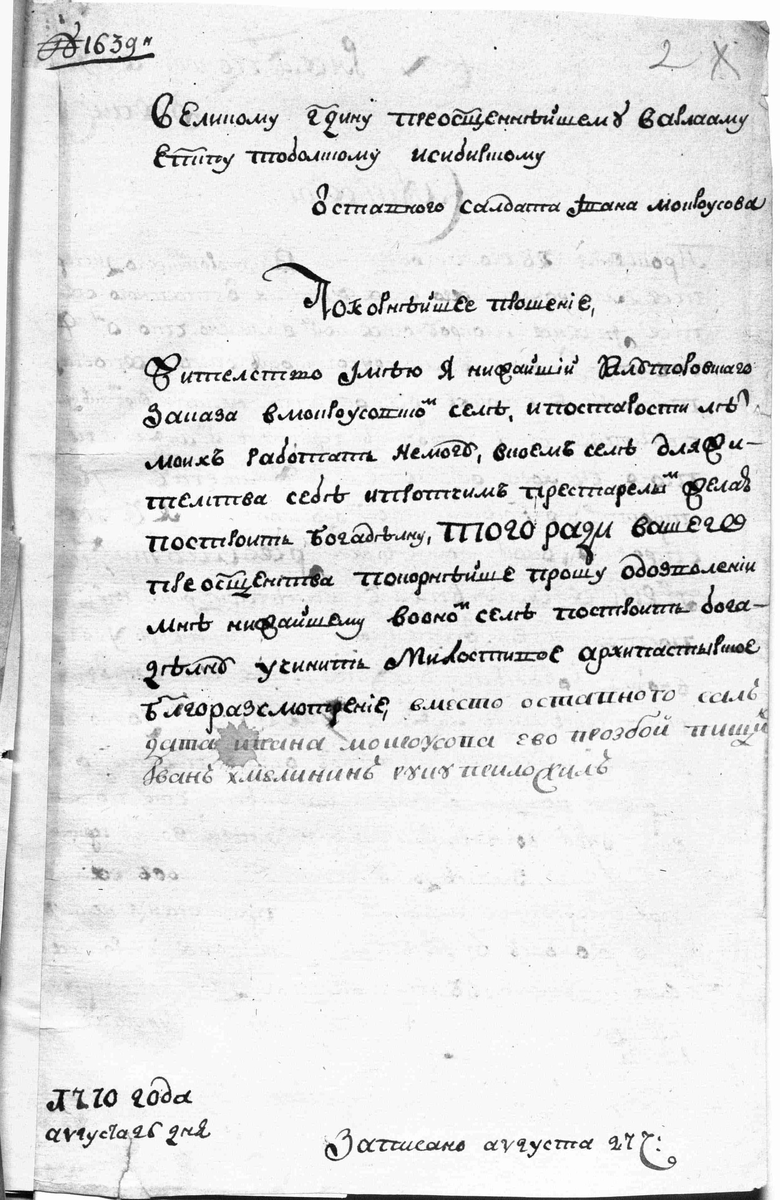 № 1639
2
Великому гдину преосщеннѣйшему Варлааму
Еппу тоболскому исибирскому
Оставного салдата Ивана мокроусова
Покорнѣйшее прошение,
Жителство Імѣю Я нижайший Ялуторовского
Заказа вмокроусовском селе, и постарости лѣт
моихъ работать немогу, втоемъ селѣ для жи-
телства себѣ ипротчимъ престарелым желаю
построить богадѣлну, того ради вашего
преосщенства покорнѣйше прошу обозволении
мнѣ нижайшему вовном селѣ построить бога-
дѣлню учинить Милостивое архипастырское
блгоразсмотрение, вместо оставного сал
дата ивана мокроусова ево прозбой пищик
Иванъ хмелининъ руку приложилъ
1770 года
августа 26 дня
Записано августа 27 ч: